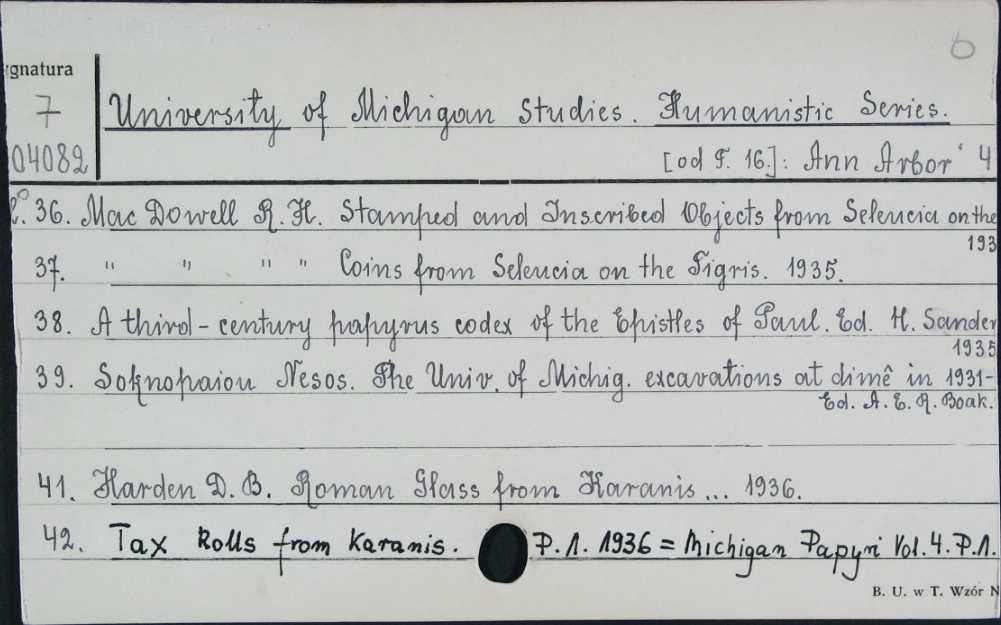 6
ygnatura
7
04082
University of Michigan Studies. Humanistic Series.
[od T. 16.]: Ann Arbor 4
36. Mac Dowell R. H. Stamped and Inscribed Objects from Seleucia on the
193
37. " " " " Coins from Seleucia on the Tigris. 1935.
38. A third-century papyrus codex of the Epistles of Paul. Ed. H. Sander
1935
39. Soknopaiou Nesos. The Univ. of Michig. excavations at dimê in 1931-
Ed. A. E. R. Boak.
41. Harden D. B. Roman Glass from Karanis ... 1936.
42. Tax Rolls from Karanis. P.1. 1936 = Michigan Papyri Vol. 4. P.1.
B. U. w T. Wzór N